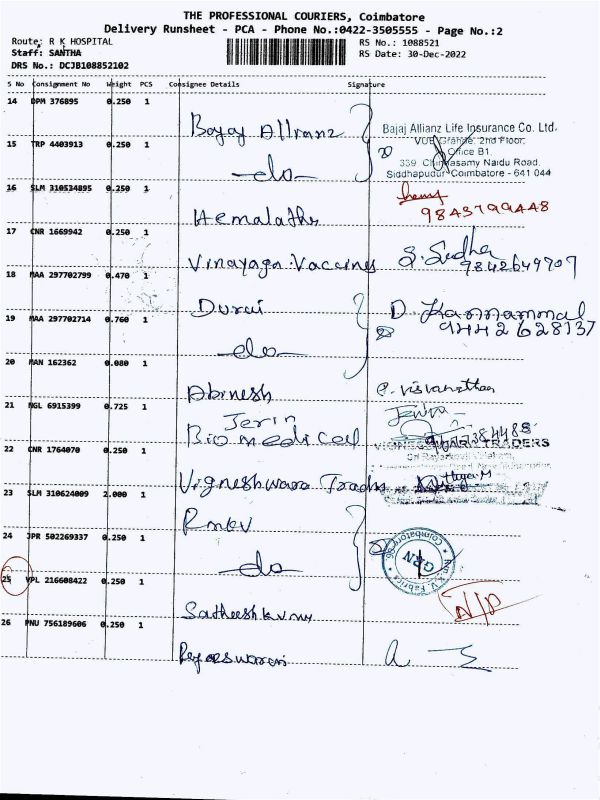 THE PROFESSIONAL COURIERS, Coimbatore
Delivery Runsheet - PCA - Phone No.:0422-3505555 - Page No.:2
Route: R K HOSPITAL
Staff: SANTHA
DRS No.: DCJB108852102
RS No.: 1088521
RS Date: 30-Dec-2022
S No Consignment No Weight PCS Consignee Details Signature
14 DPM 376895 0.250 1
Bajaj Allianz
Bajaj Allianz Life Insurance Co. Ltd.
VUE Grande, 2nd Floor,
Office B1,
339 Chinnasamy Naidu Road,
Siddhapudur Coimbatore - 641 044
15 TRP 4403913 0.250 1
do
16 SLM 310534895 0.250 1
Hemalatha
9843799448
17 CNR 1669942 0.250 1
Vinayaga Vaccines
S. Sudha
9842649707
18 MAA 297702799 0.470 1
Durai
D. Kannammal
9442628137
19 MAA 297702714 0.760 1
do
20 MAN 162362 0.080 1
Abinesh
21 NGL 6915399 0.725 1
Jerin
Bio medical
22 CNR 1764070 0.250 1
Vigneshwara Traders
TRADERS
23 SLM 310624009 2.000 1
Rmkv
24 JPR 502269337 0.250 1
do
GRN
25 VPL 216608422 0.250 1
Satheesh kumar
N/P
26 PNU 756189606 0.250 1
Rajeswari